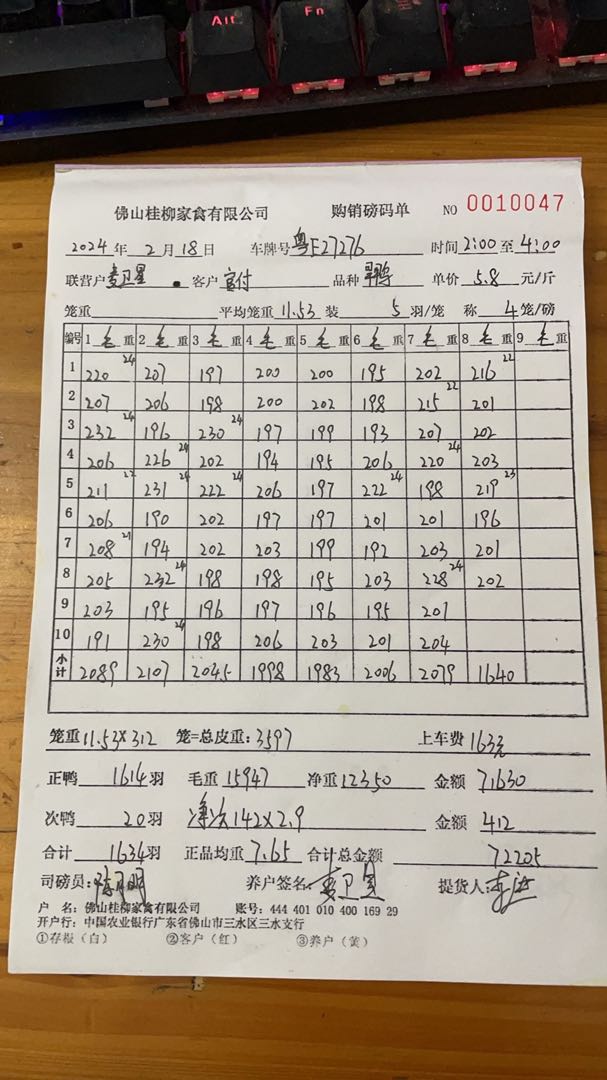 Alt Fn
佛山桂柳家禽有限公司 购销磅码单 NO 0010047
2024 年 2 月 18 日 车牌号 粤E27276 时间 2:00 至 4:00
联营户 麦卫星 客户 官付 品种 单价 5.8 元/斤
笼重 平均笼重 11.53 装 5 羽/笼 称 4 笼/磅
编号 1 毛 重 2 毛 重 3 毛 重 4 毛 重 5 毛 重 6 毛 重 7 毛 重 8 毛 重 9 毛 重
1 220 24 207 197 200 200 195 202 216 22
2 207 206 198 200 202 198 215 22 201
3 232 24 196 230 24 197 199 193 207 202
4 206 226 24 202 194 195 206 220 24 203
5 211 231 24 222 24 206 197 222 24 198 219 23
6 206 190 202 197 197 201 201 196
7 208 21 194 202 203 199 192 203 201
8 205 232 24 198 198 195 203 228 24 202
9 203 195 196 197 196 195 201
10 191 230 24 198 206 203 201 204
小计 2089 2107 2045 1998 1983 2006 2079 1640
笼重 11.53×312 笼=总皮重: 3597 上车费 163元
正鸭 1614 羽 毛重 15947 净重 12350 金额 71630
次鸭 20 羽 净次 142×2.9 金额 412
合计 1634 羽 正品均重 7.65 合计总金额 72205
司磅员: 养户签名: 麦卫星 提货人:
户 名: 佛山桂柳家禽有限公司 账号: 444 401 010 400 169 29
开户行: 中国农业银行广东省佛山市三水区三水支行
①存根（白） ②客户（红） ③养户（黄）